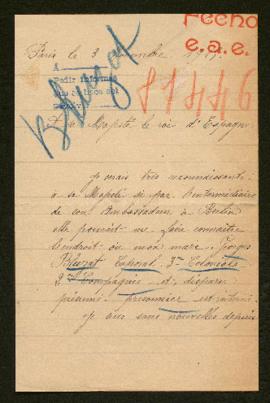 Fecho
e.a.e.
Paris le 3
A
Pedir informes
Bluzat
87446
Sa Majesté le roi d'Espagne
je serais très reconnaissante
a sa Majesté si par l'intermédiaire
de son Ambassadeur à Berlin
elle pouvait me faire connaître
l'endroit où mon mari, Georges
Bluzat Caporal 3me Coloniale
2me Compagnie est disparu
présumé prisonnier
je suis sans nouvelles depuis